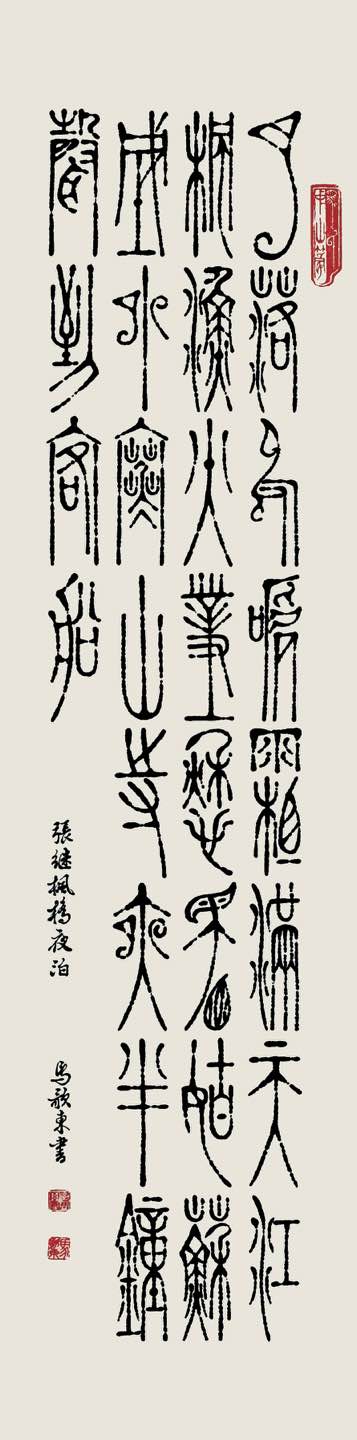 月落烏啼霜滿天江
楓漁火對愁眠姑蘇
城外寒山寺夜半鐘
聲到客船
張继楓橋夜泊
馬歌東書